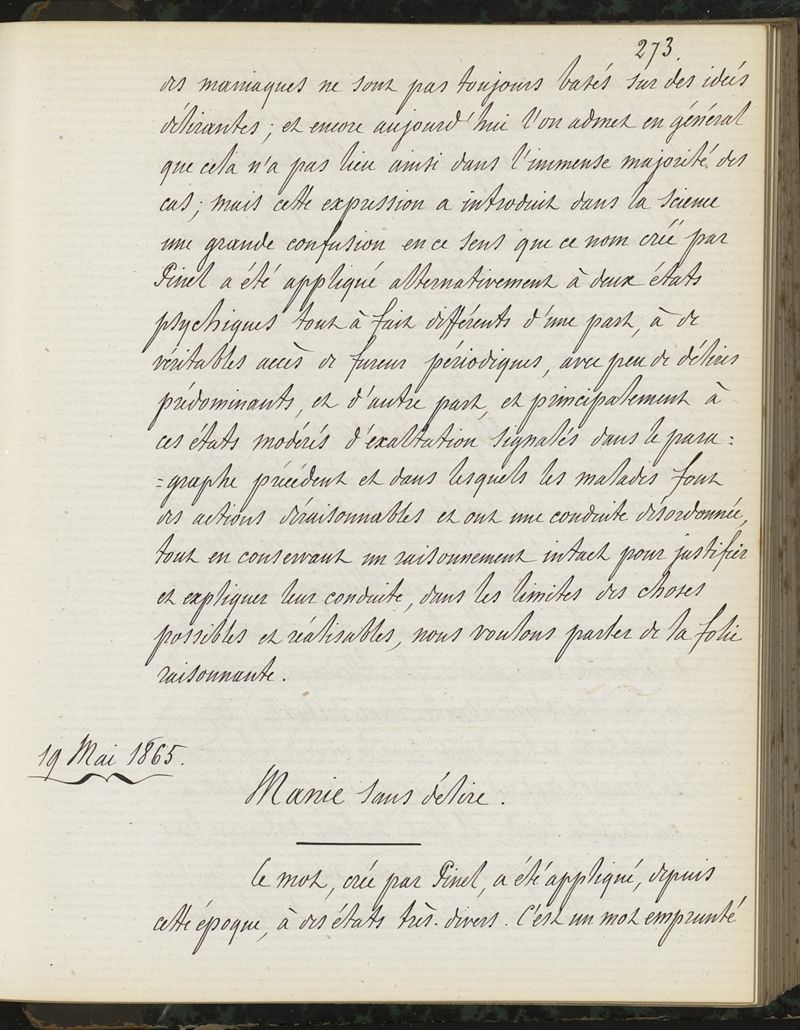 273.
des maniaques ne sont pas toujours basés sur des idées
délirantes ; et encore aujourd'hui l'on admet en général
que cela n'a pas lieu ainsi dans l'immense majorité des
cas ; mais cette expression a introduit dans la science
une grande confusion en ce sens que ce nom créé par
Pinel a été appliqué alternativement à deux états
psychiques tout à fait différents d'une part, à de
véritables accès de fureur périodiques, avec peu de délires
prédominants, et d'autre part, et principalement à
ces états modérés d'exaltation signalés dans le para=
=graphe précédent et dans lesquels les malades font
des actions déraisonnables et ont une conduite désordonnée,
tout en conservant un raisonnement intact pour justifier
et expliquer leur conduite, dans les limites des choses
possibles et réalisables, nous voulons parler de la folie
raisonnante.
19 Mai 1865.
Manie sans délire.
Ce mot, créé par Pinel, a été appliqué, depuis
cette époque, à des états très-divers. C'est un mot emprunté